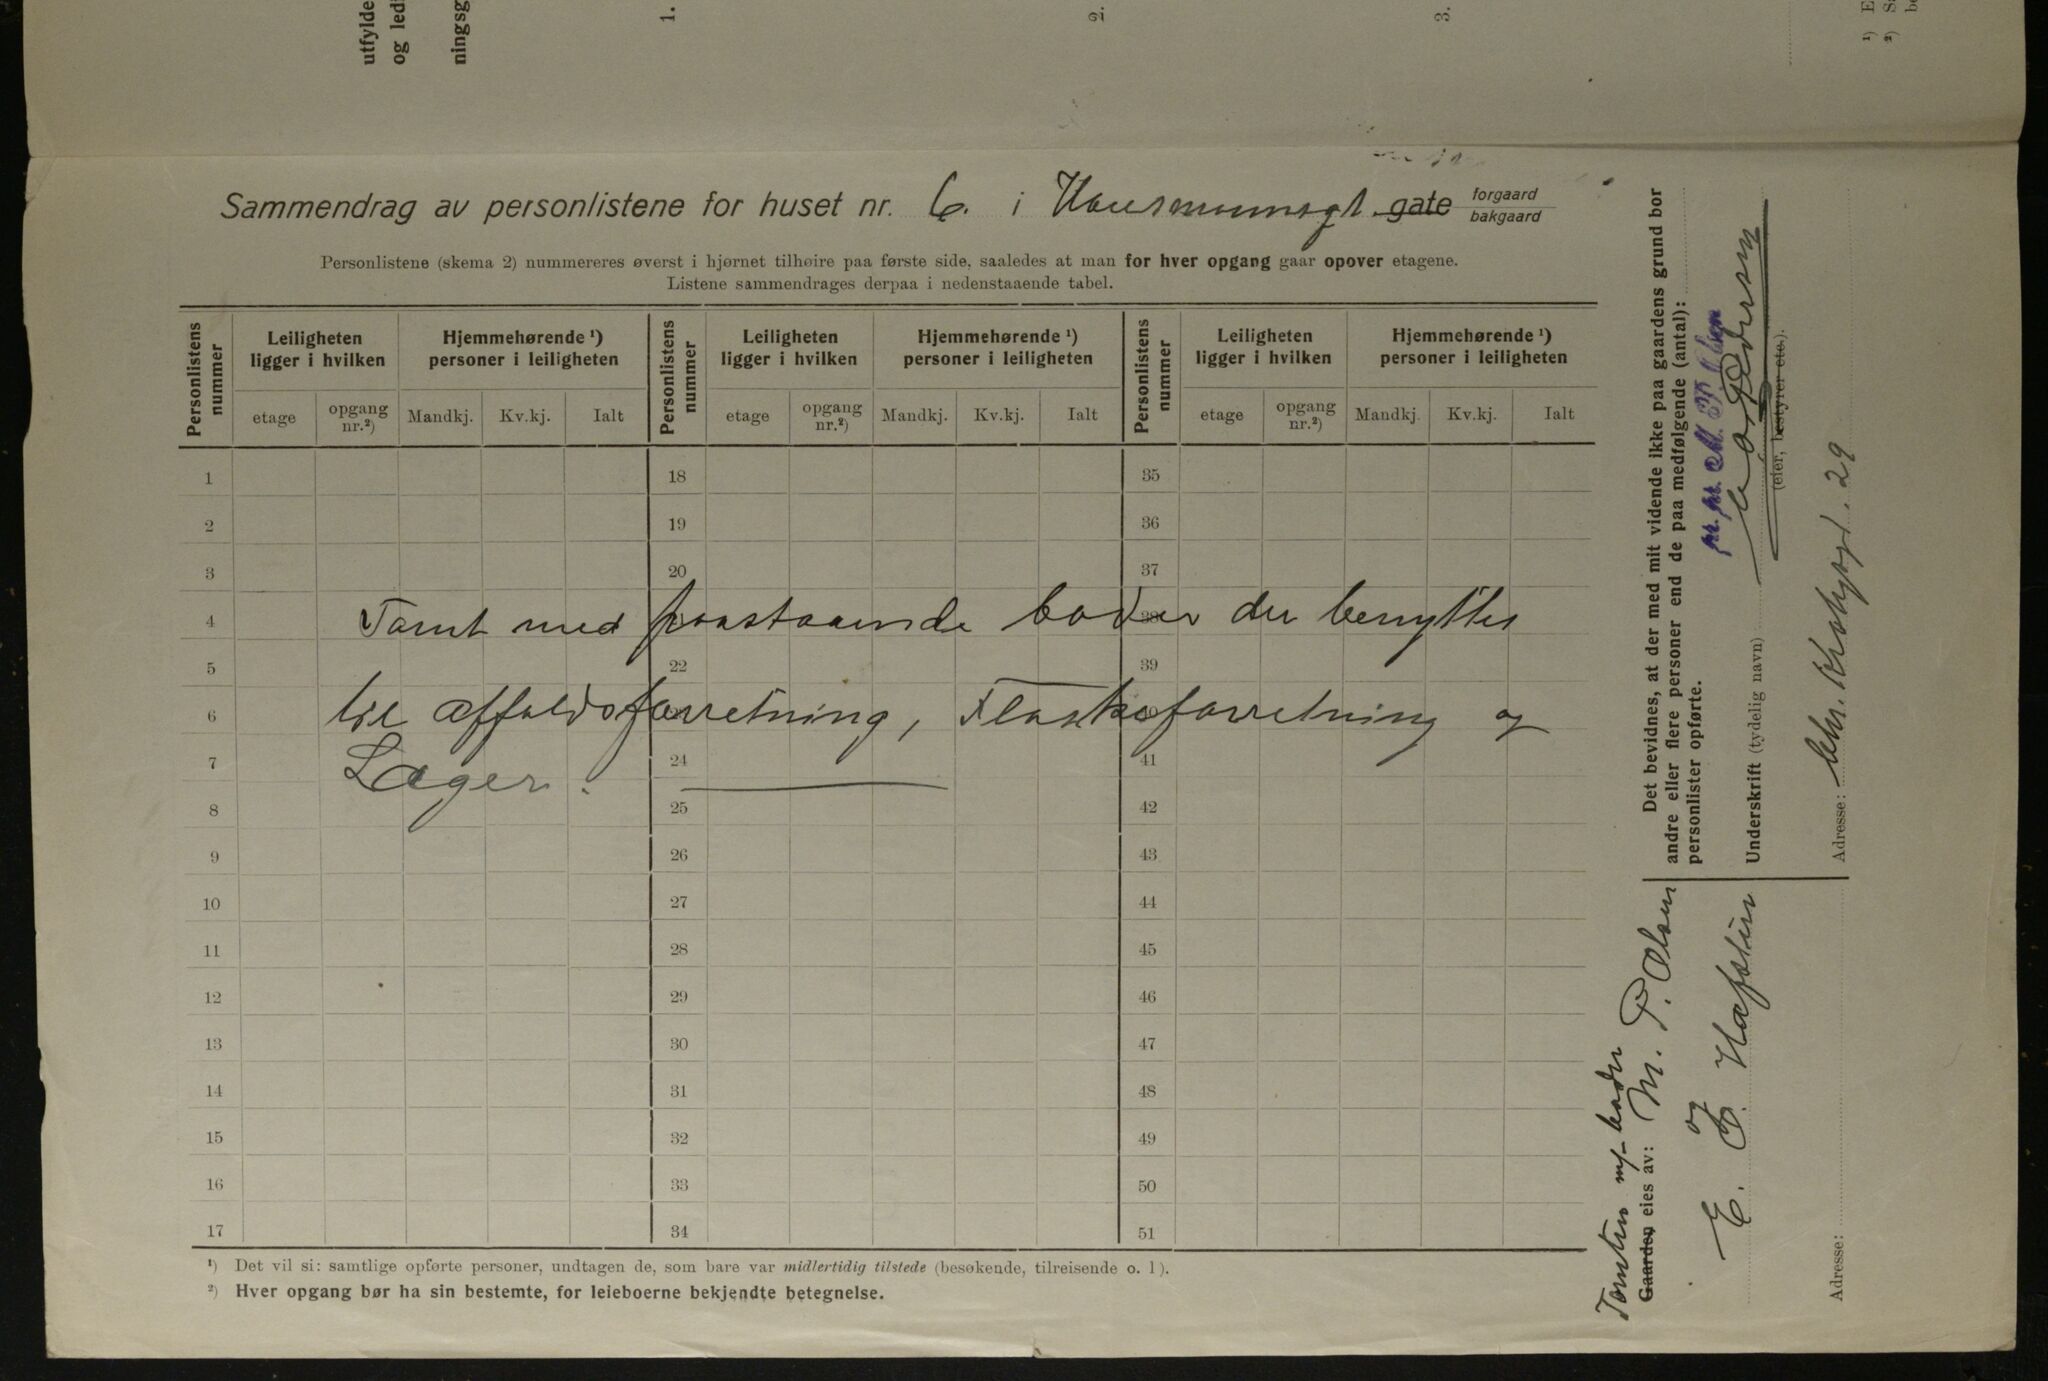 utfylde
og ledi
ningsg
1.
2.
3.
¹) E
²) Sa
be
Sammendrag av personlistene for huset nr. 6. i Hausmannsgt. gate forgaard
bakgaard
Personlistene (skema 2) nummereres øverst i hjørnet tilhøire paa første side, saaledes at man for hver opgang gaar opover etagene.
Listene sammendrages derpaa i nedenstaaende tabel.
Personlistens nummer Leiligheten ligger i hvilken Hjemmehørende ¹) personer i leiligheten Personlistens nummer Leiligheten ligger i hvilken Hjemmehørende ¹) personer i leiligheten Personlistens nummer Leiligheten ligger i hvilken Hjemmehørende ¹) personer i leiligheten
etage opgang nr.²) Mandkj. Kv.kj. Ialt etage opgang nr.²) Mandkj. Kv.kj. Ialt etage opgang nr.²) Mandkj. Kv.kj. Ialt
1 18 35
2 19 36
3 20 37
4 38
Tomt med paastaaende boder der benyttes
5 22 39
6
til affaldsforretning, Flaskeforretning og
7 24 41
Lager.
8 25 42
9 26 43
10 27 44
11 28 45
12 29 46
13 30 47
14 31 48
15 32 49
16 33 50
17 34 51
¹) Det vil si: samtlige opførte personer, undtagen de, som bare var midlertidig tilstede (besøkende, tilreisende o. l).
²) Hver opgang bør ha sin bestemte, for leieboerne bekjendte betegnelse.
Det bevidnes, at der med mit vidende ikke paa gaardens grund bor
andre eller flere personer end de paa medfølgende (antal):
personlister opførte.
pr. pr. M. P. Olsen
Underskrift (tydelig navn) Pedersen
(eier, bestyrer etc.).
Adresse: Chr. Krohgsgt. 29
Tomten m/ boder
Gaarden eies av: M. P. Olsen
og
E. Hafsten
Adresse: